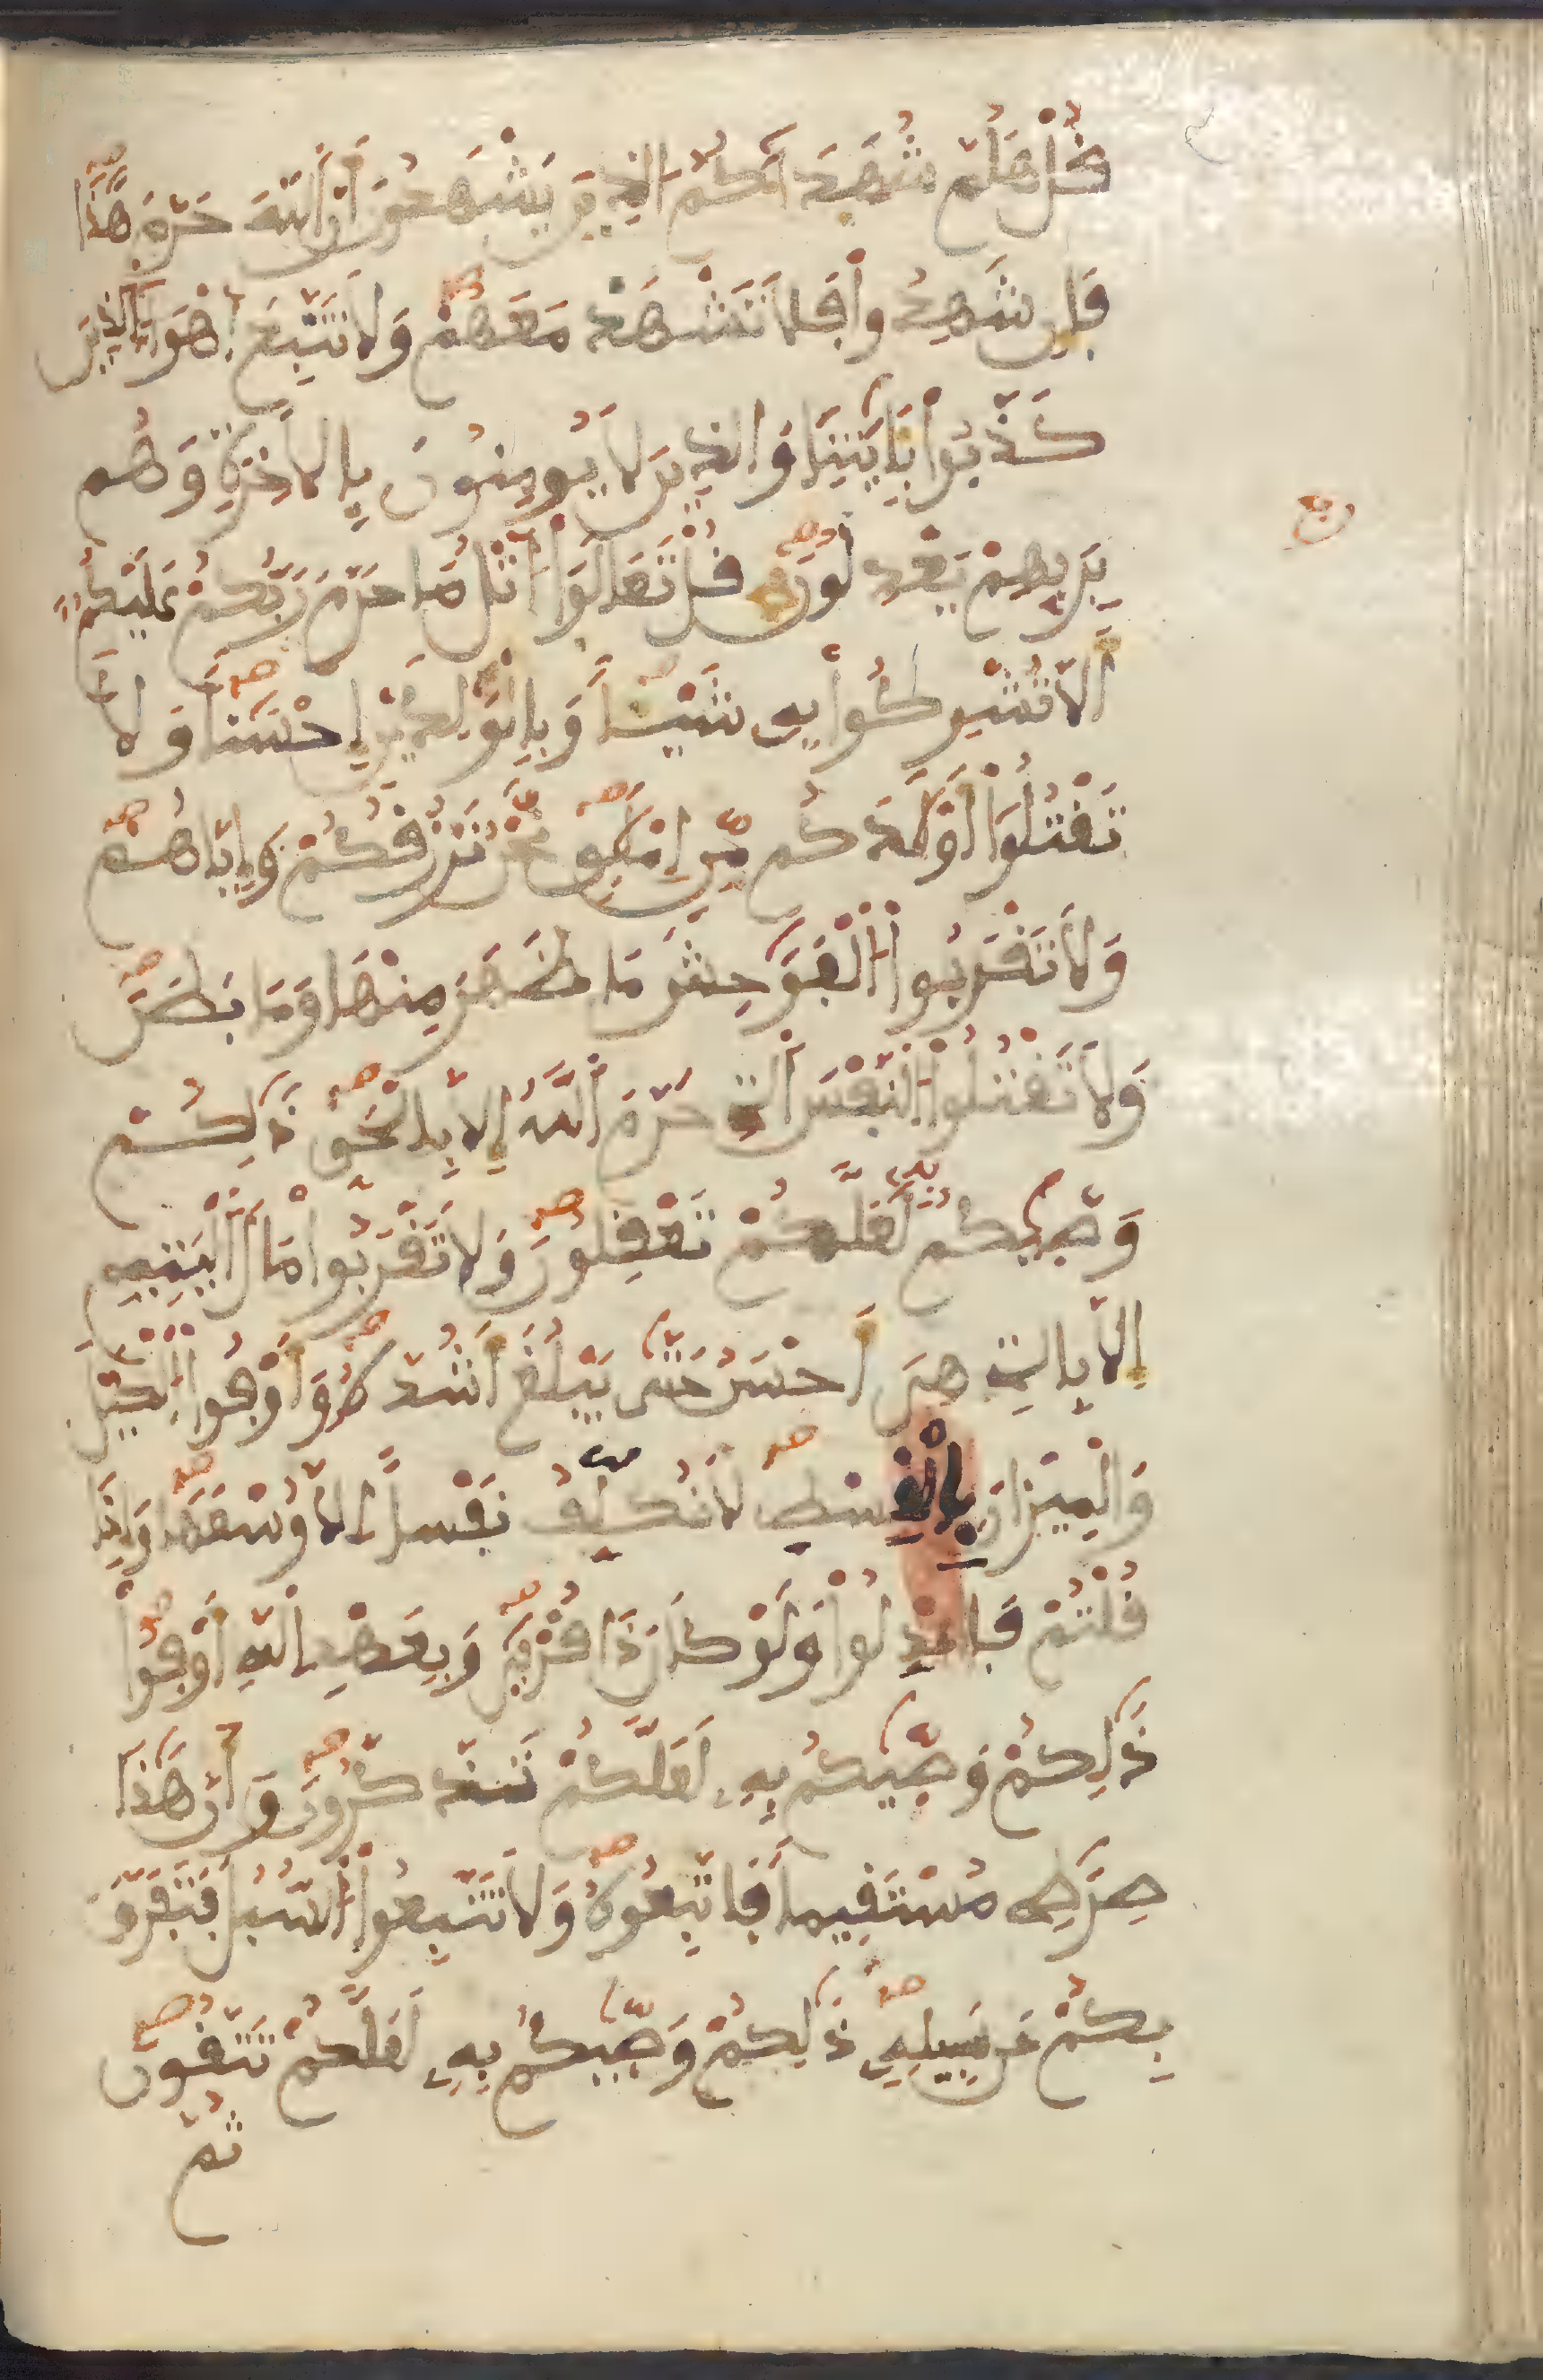 قُلْ هَلُمَّ شُهَدَآءَكُمُ الذِينَ يَشْهَدُونَ أَنَّ اَللَّهَ حَرَّمَ هَٰذَا
فَإِن شَهِدُواْ فَلَا تَشْهَدْ مَعَهُمْ وَلَا تَتَّبِعَ اَهْوَآءَ اَلذِينَ
كَذَّبُواْ بِـَٔايَٰتِنَا وَالذِينَ لَا يُومِنُونَ بِالَاخِرَةِ وَهُم
بِرَبِّهِمْ يَعْدِلُونَ قُلْ تَعَالَوَاْ اَتْلُ مَا حَرَّمَ رَبُّكُمْ عَلَيْكُمُۥٓ
أَلَّا تُشْرِكُواْ بِهِۦ شَيْـًٔا وَبِالْوَٰلِدَيْنِ إِحْسَٰنًا وَلَا
تَقْتُلُوٓاْ أَوْلَٰدَكُم مِّنِ اِمْلَٰقٍ نَّحْنُ نَرْزُقُكُمْ وَإِيَّاهُمْ
وَلَا تَقْرَبُواْ اُلْفَوَٰحِشَ مَا ظَهَرَ مِنْهَا وَمَا بَطَنَ
وَلَا تَقْتُلُواْ اُلنَّفْسَ اَلتِے حَرَّمَ اَللَّهُ إِلَّا بِالْحَقِّ ذَٰلِكُمْ
وَصَّيٰكُم بِهِۦ لَعَلَّكُمْ تَعْقِلُونَ وَلَا تَقْرَبُواْ مَالَ اَلْيَتِيمِ
إِلَّا بِالتِے هِيَ أَحْسَنُ حَتَّىٰ يَبْلُغَ أَشُدَّهُۥ وَأَوْفُواْ اُلْكَيْلَ
وَالْمِيزَانَ بِالْقِسْطِ لَا نُكَلِّفُ نَفْسًا اِلَّا وُسْعَهَا وَإِذَا
قُلْتُمْ فَاعْدِلُواْ وَلَوْ كَانَ ذَا قُرْبَىٰ وَبِعَهْدِ اِللَّهِ أَوْفُواْ
ذَٰلِكُمْ وَصَّيٰكُم بِهِۦ لَعَلَّكُمْ تَذَّكَّرُونَ وَأَنَّ هَٰذَا
صِرَٰطِے مُسْتَقِيمًا فَاتَّبِعُوهُ وَلَا تَتَّبِعُواْ اُلسُّبُلَ فَتَفَرَّقَ
بِكُمْ عَن سَبِيلِهِۦ ذَٰلِكُمْ وَصَّيٰكُم بِهِۦ لَعَلَّكُمْ تَتَّقُونَ
ثُمَّ